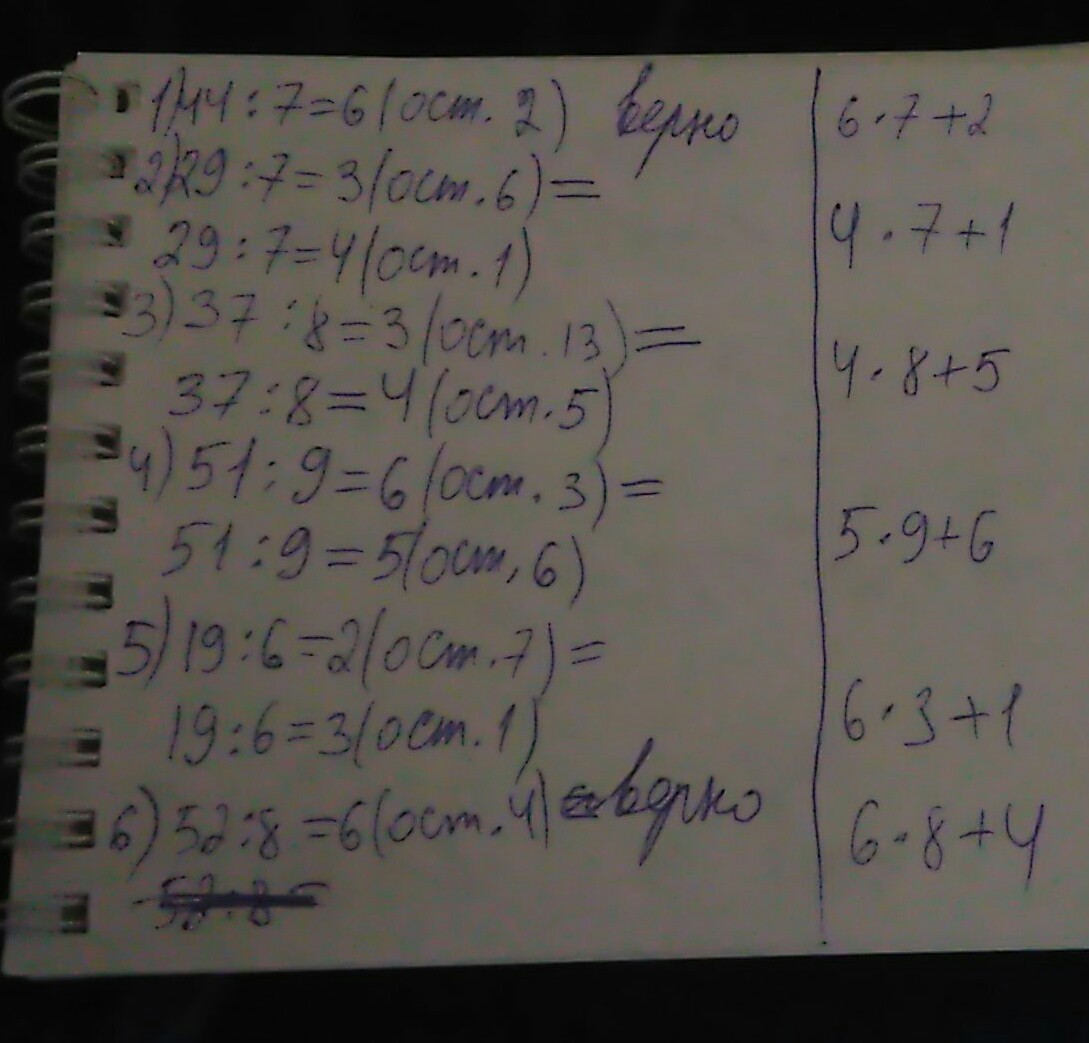 1) 44 : 7 = 6 (ост. 2) верно
2) 29 : 7 = 3 (ост. 6) =
29 : 7 = 4 (ост. 1)
3) 37 : 8 = 3 (ост. 13) =
37 : 8 = 4 (ост. 5)
4) 51 : 9 = 6 (ост. 3) =
51 : 9 = 5 (ост. 6)
5) 19 : 6 = 2 (ост. 7) =
19 : 6 = 3 (ост. 1)
6) 52 : 8 = 6 (ост. 4) верно
52 : 8 =
6 · 7 + 2
4 · 7 + 1
4 · 8 + 5
5 · 9 + 6
6 · 3 + 1
6 · 8 + 4